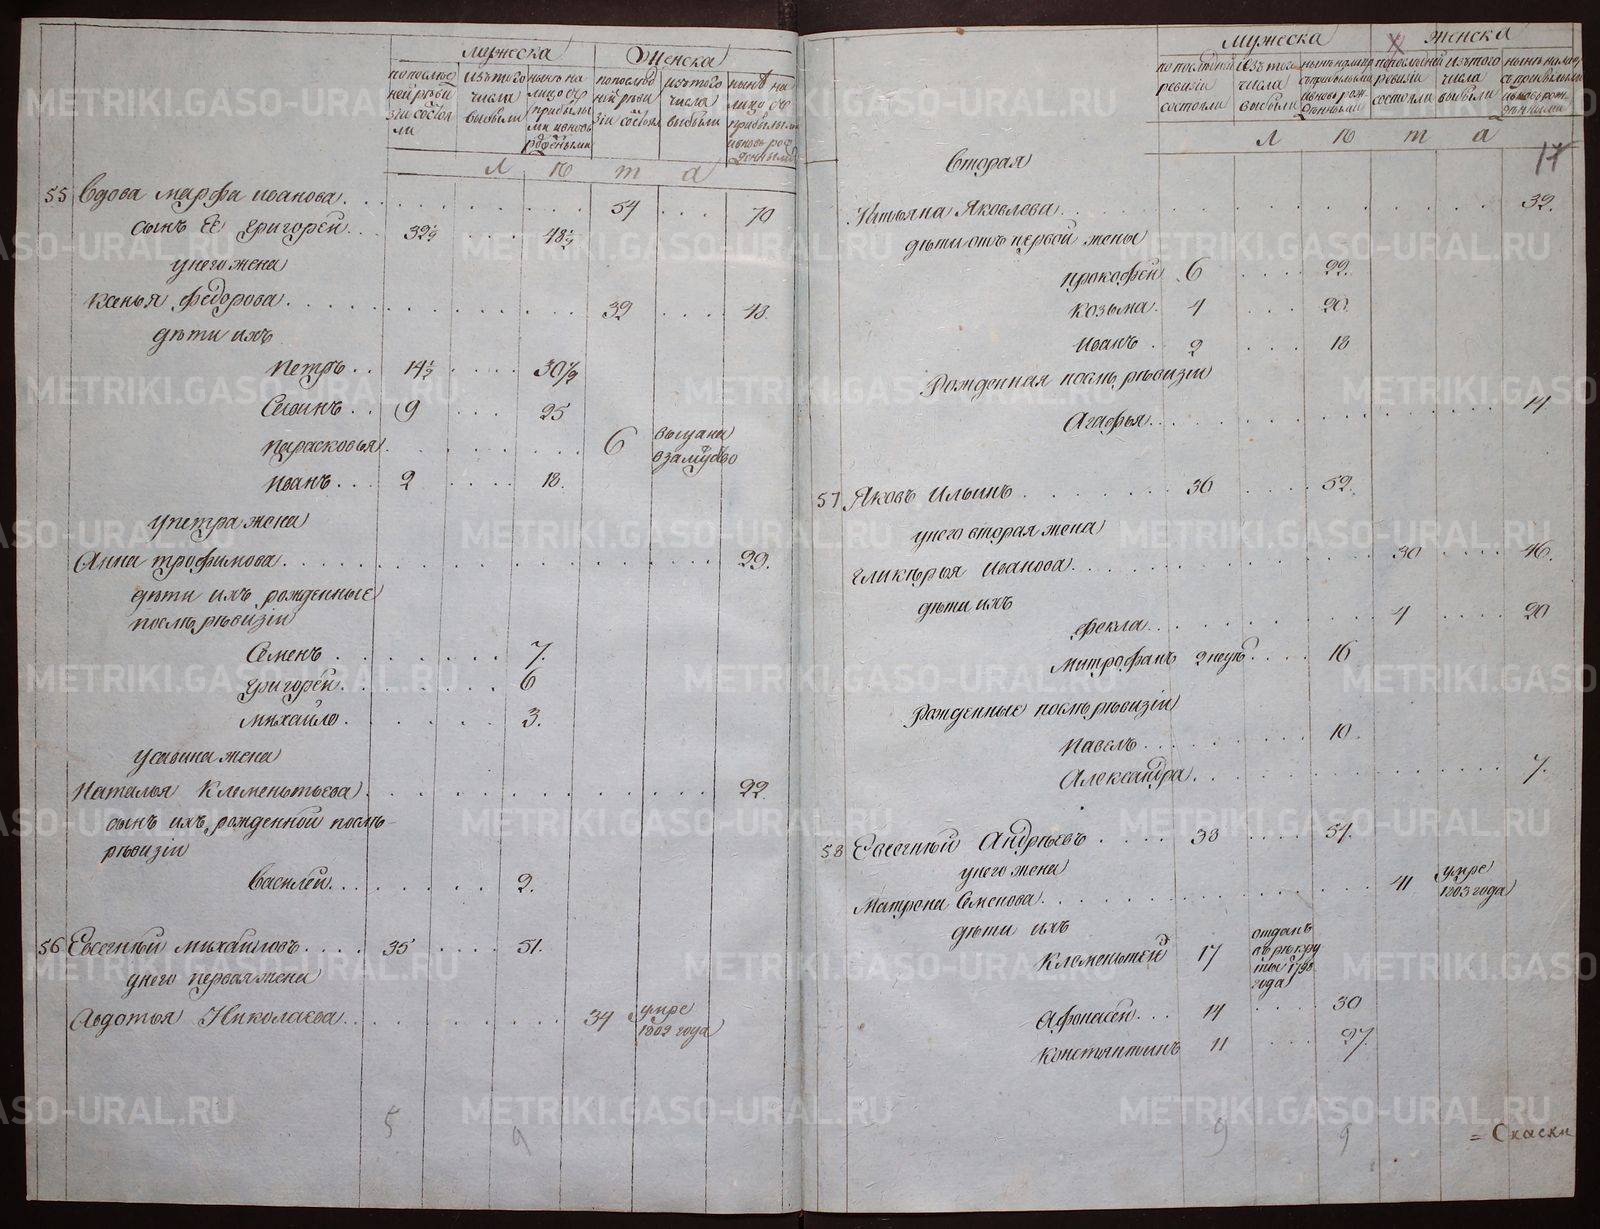 мужеска
Женска
по после
дней реви
зіи состоя
ли
изъ того
числа
выбыли
ныне на
лицо съ
прибылы
ми и вновь
рожденными
по послед
ней реви
зіи состоя
изъ того
числа
выбыли
ныне на
лицо съ
прибылыми
и вновь рож
денными
л ѣ т а
55 Вдова марфа иванова 54 70
сынъ ее григорей 32½ 48½
у него жена
ксенья федорова 32 48.
дѣти ихъ
Петръ 14½ 30½
Савинъ 9 25
Парасковья 6 выдана
в замуство
Иванъ 2 18.
у петра жена
Анна трофимова 29.
дѣти ихъ рожденные
послѣ ревизіи
Семенъ 7.
григорей 6
михайло 3.
у савина жена
Наталья Клементьева 22
сынъ ихъ рожденной послѣ
ревизіи
Василей 2.
56 Евсегнѣй михайловъ 35 51.
у него первая жена
Авдотья Николаева 34 умре
1802 года
5 9
мужеска
женска
по последней
ревизіи
состояли
изъ того
числа
выбыли
ныне на лицо
съ прибылыми
и вновь рож
денными
по последней
ревизіи
состояли
изъ того
числа
выбыли
ныне на лицо
съ прибылыми
и вновь рож
денными
л ѣ т а
17
вторая
Татьяна Яковлева 32.
дѣти отъ первой жены
Прокофей 6 22.
козьма 4 20.
Иванъ 2 18
Рожденная послѣ ревизіи
Агафья 14
57 Яковъ Ильинъ 36 52.
у него вторая жена
гликерья иванова 30 46.
дѣти ихъ
фекла 4 20
митрофанъ 2 неде 16
Рожденные послѣ ревизіи
Павелъ 10.
Александра 7.
58 Евсегнѣй Андреевъ 38 54.
у него жена
Матрена Семенова 41 умре
1803 года
дѣти ихъ
Клементей 17 отданъ
въ рекру
ты 1798
года
Афонасей 14 30
Констянтинъ 11 27.
9 9
= Скаски
METRIKI.GASO-URAL.RU